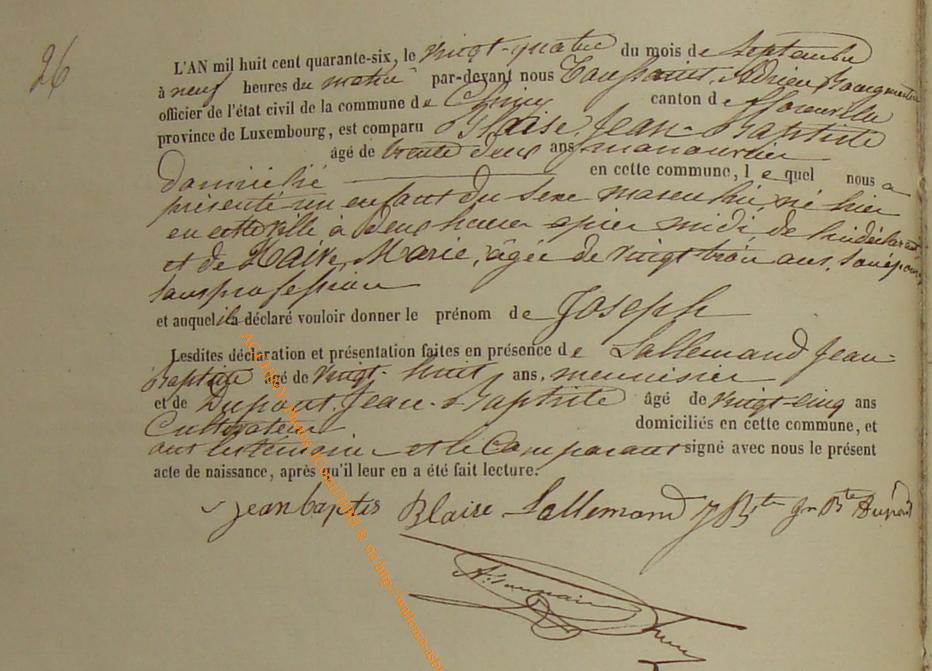 26
L'AN mil huit cent quarante-six, le vingt-quatre du mois de Septembre
à neuf heures du matin par-devant nous Toussaint, Adrien
officier de l'état civil de la commune de Chiny canton de florenville
province de Luxembourg, est comparu Blaise, Jean-Baptiste
âgé de trente deux ans, manouvrier
domicilié en cette commune, lequel nous a
présenté un enfant du Sexe masculin, né hier
en cette ville à deux heures après midi, de lui déclarant
et de Marie, âgée de vingt trois ans, son épouse
sans profession
et auquel il a déclaré vouloir donner le prénom de Joseph
Lesdites déclaration et présentation faites en présence de Lallemand Jean-
Baptiste âgé de vingt-huit ans, menuisier
et de Dupont, Jean-Baptiste âgé de vingt-cinq ans
Cultivateur domiciliés en cette commune, et
ont les témoins et le Comparant signé avec nous le présent
acte de naissance, après qu'il leur en a été fait lecture.
jean baptis Blaise Lallemand J Bte Jn Bte Dupont